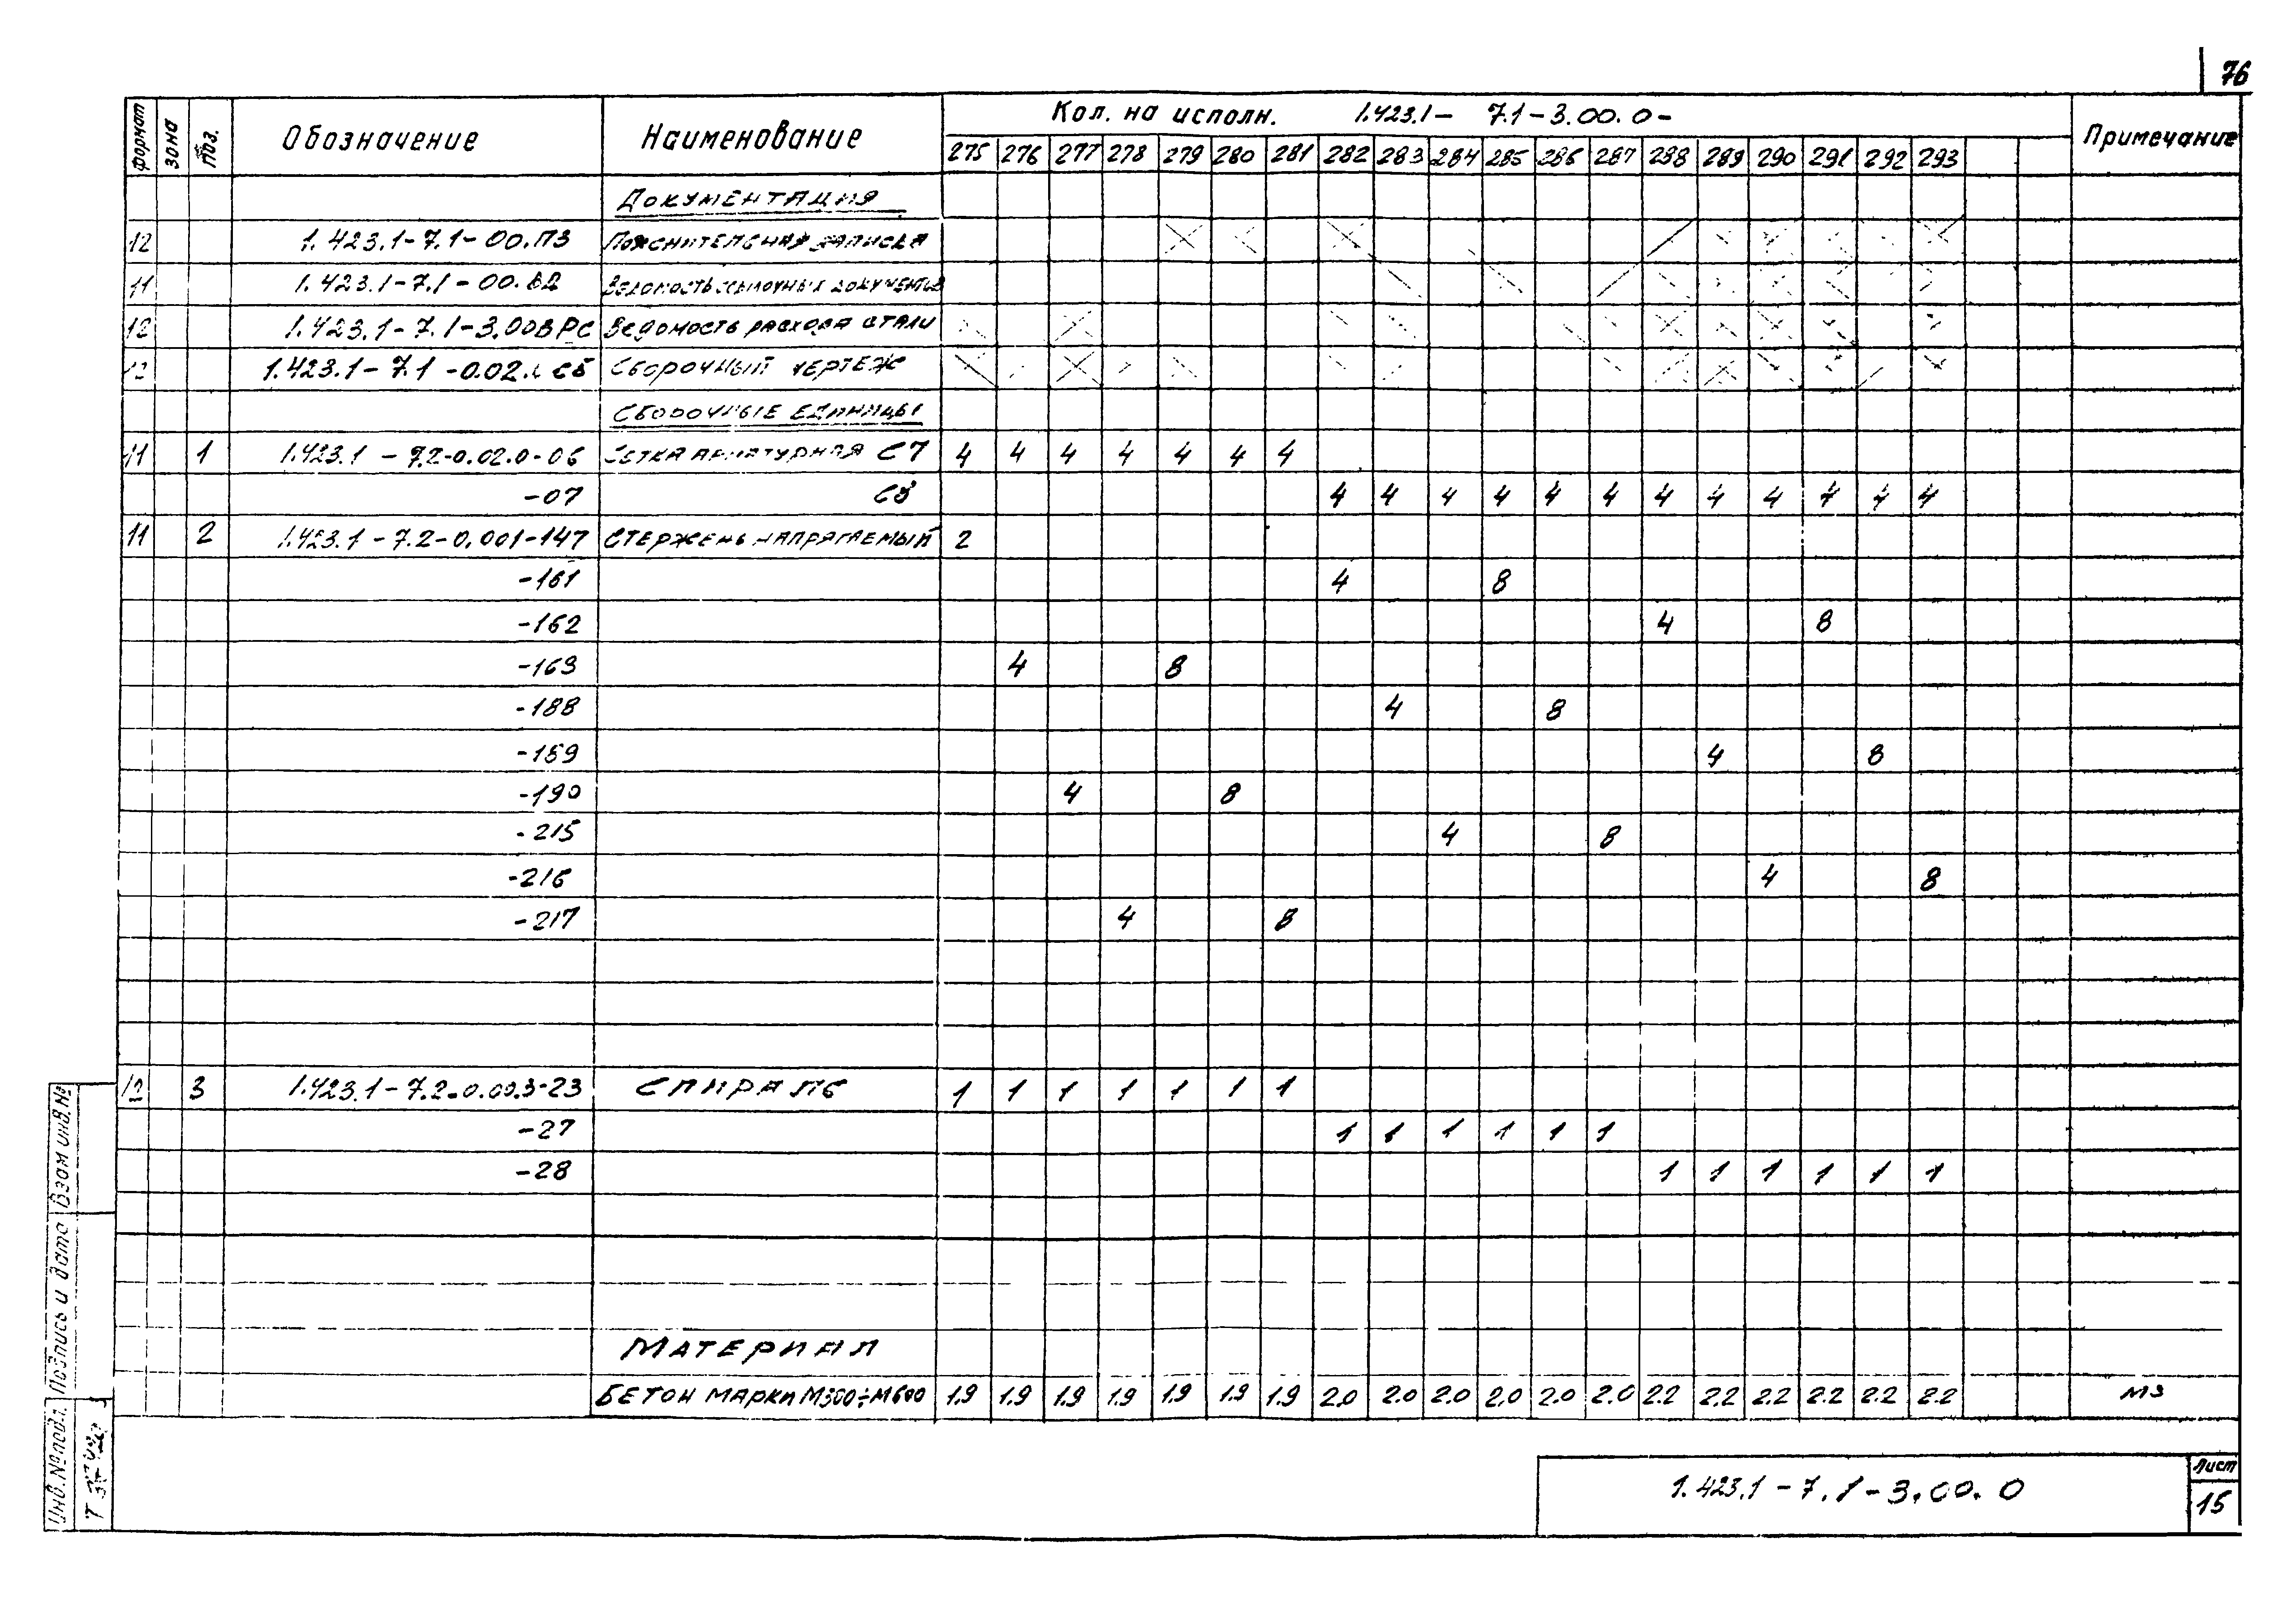 76
формат зона Поз. Обозначение Наименование Кол. на исполн. 1.423.1- 7.1-3.00.0- Примечание
275 276 277 278 279 280 281 282 283 284 285 286 287 288 289 290 291 292 293
Документация
12 1.423.1-7.1-00.ПЗ Пояснительная записка
11 1.423.1-7.1-00.ВД Ведомость ссылочных документов
12 1.423.1-7.1-3.00ВРС Ведомость расхода стали
12 1.423.1-7.1-0.02. СБ Сборочный чертеж
Сборочные единицы
11 1 1.423.1-7.2-0.02.0-06 Сетка арматурная С7 4 4 4 4 4 4 4
-07 С8 4 4 4 4 4 4 4 4 4 4 4 4
11 2 1.423.1-7.2-0.001-147 Стержень напрягаемый 2
-161 4 8
-162 4 8
-163 4 8
-188 4 8
-189 4 8
-190 4 8
-215 4 8
-216 4 8
-217 4 8
12 3 1.423.1-7.2-0.00.3-23 Спираль 1 1 1 1 1 1 1
-27 1 1 1 1 1 1
-28 1 1 1 1 1 1
Материал
Бетон марки М300÷М600 1.9 1.9 1.9 1.9 1.9 1.9 1.9 2.0 2.0 2.0 2.0 2.0 2.0 2.2 2.2 2.2 2.2 2.2 2.2 м3
Инв. № подл. Подпись и дата Взам инв. №
1.423.1-7.1-3.00.0
Лист
15